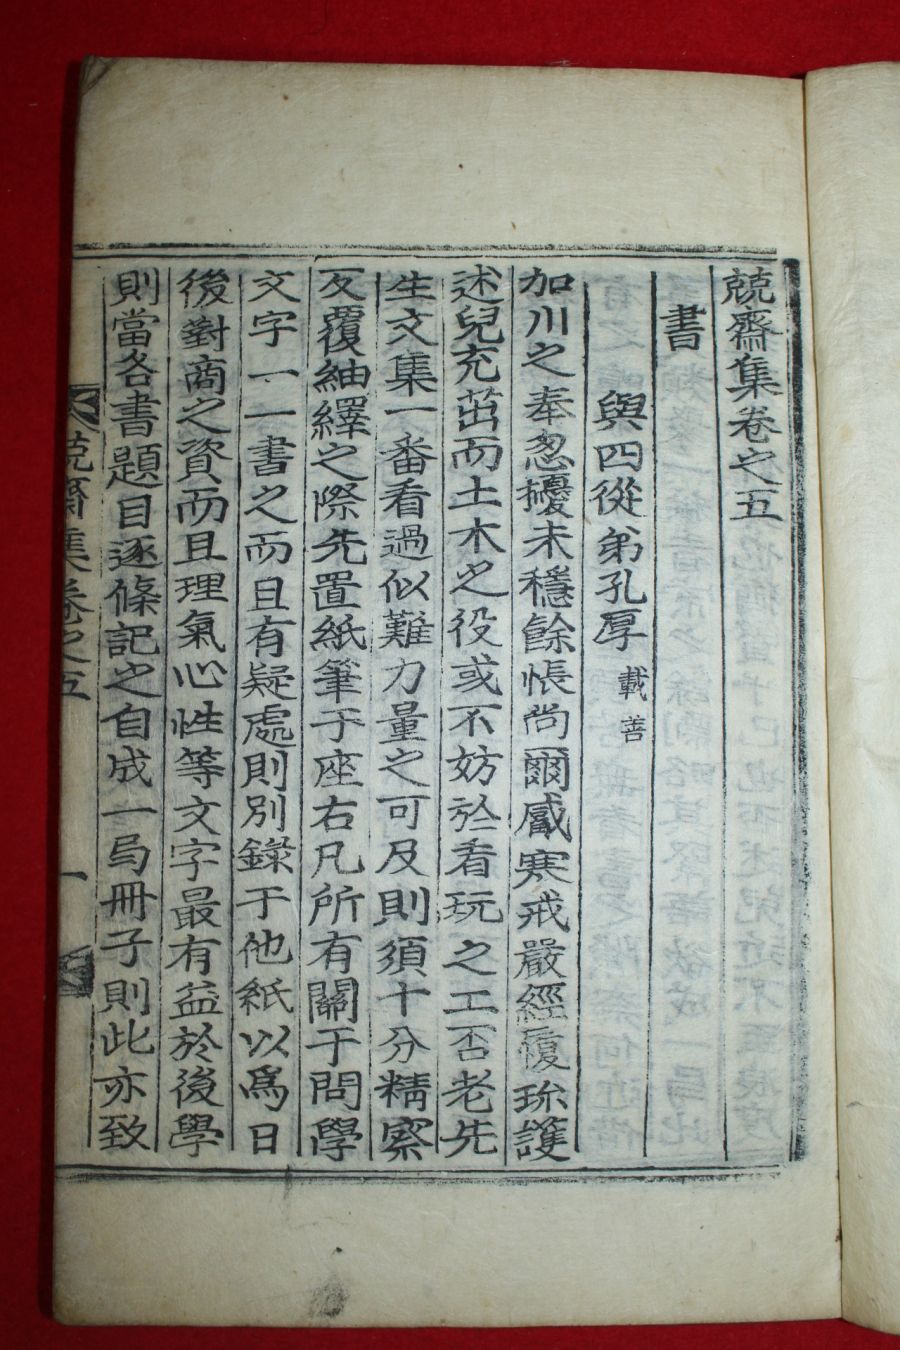 兢齋集卷之五
書
與四從弟孔厚 載善
加川之奉忽擾未穩餘悵尚爾咸寒戒嚴經履珎護
述兒充茁而土木之役或不妨於看玩之工否老先
生文集一番看過似難力量之可及則須十分精察
反覆紬繹之際先置紙筆于座右凡所有關于問學
文字一一書之而且有疑處則別錄于他紙以爲日
後對商之資而且理氣心性等文字最有益於後學
則當各書題目逐條記之自成一局冊子則此亦致
兢齋集卷之五
一